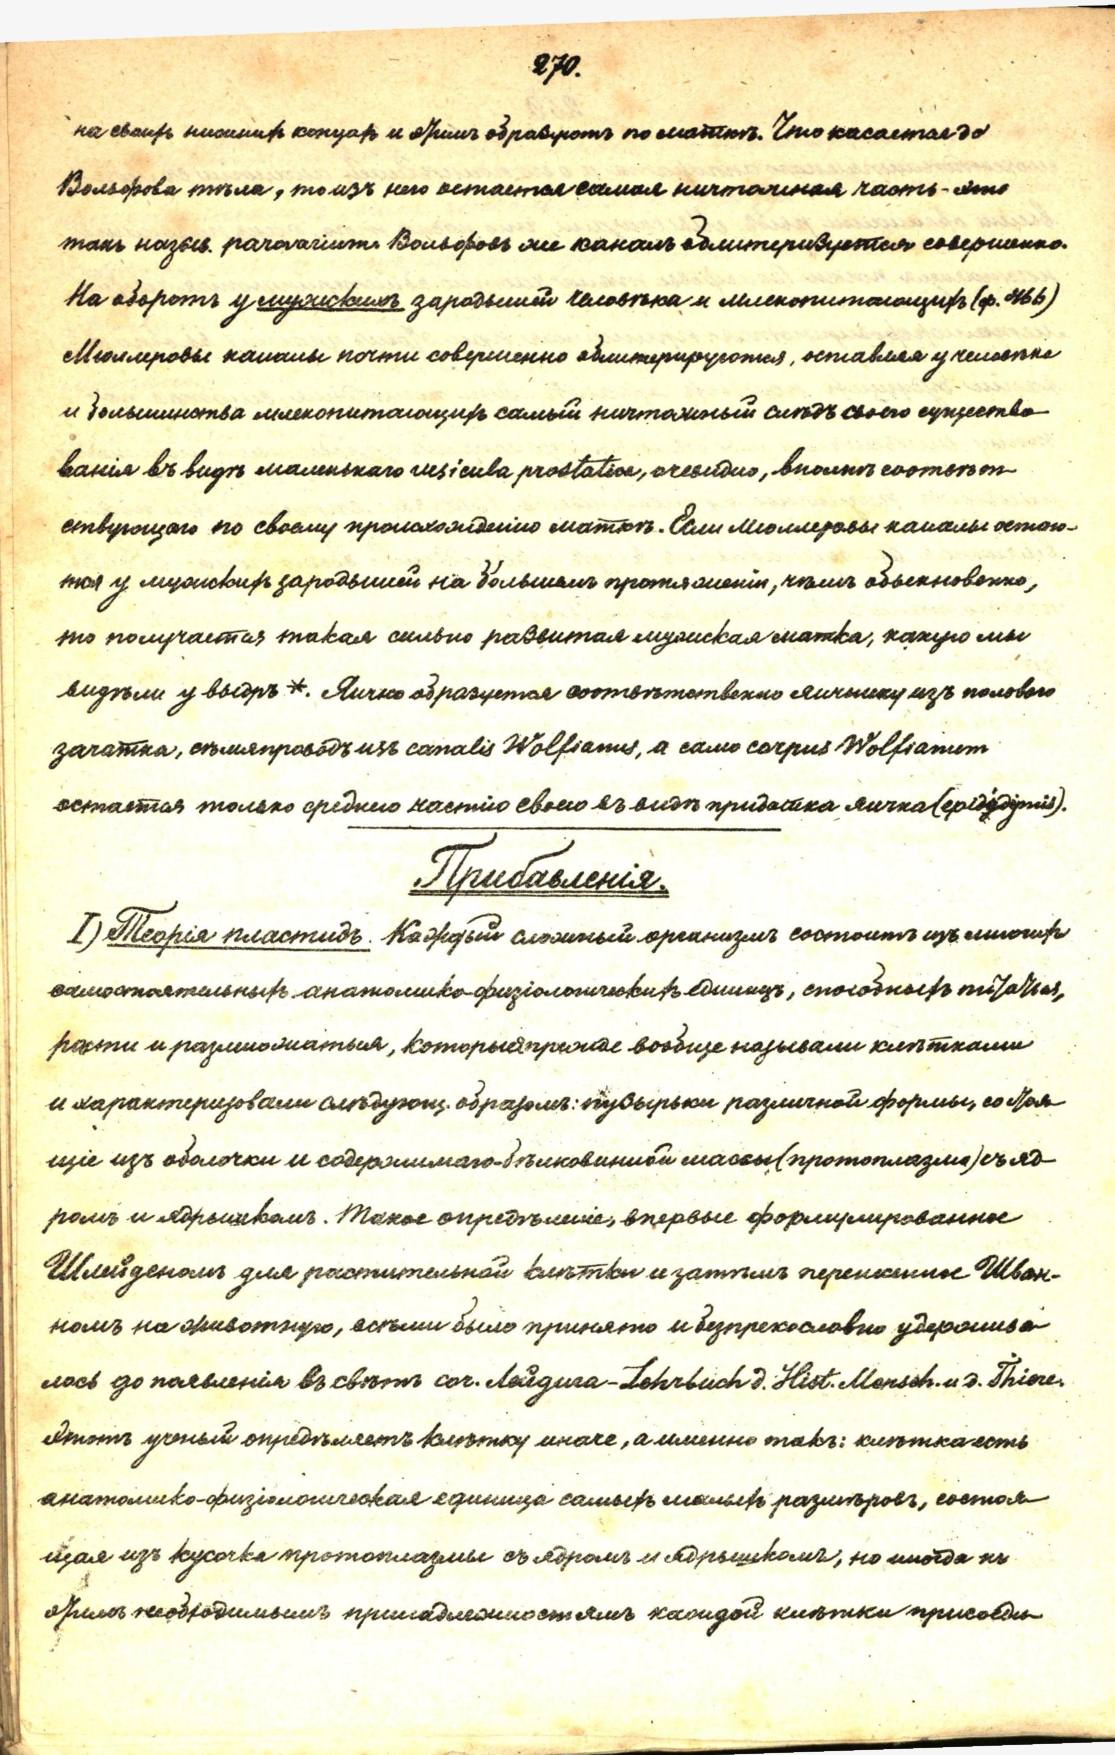 270.
на своихъ нижнихъ концахъ и этимъ образуютъ по маткѣ. Что касается до
Вольфова тѣла, то изъ него остается самая ничтожная часть - это
такъ назыв. parovarium. Вольфовъ же каналъ облитеризуется совершенно.
На оборотъ у мужскихъ зародышей человѣка и млекопитающихъ (ф. 466)
Мюллеровы каналы почти совершенно облитерируются, оставляя у человѣка
и большинства млекопитающихъ самый ничтожный слѣдъ своего существо
ванія въ видѣ маленькаго vesicula prostatica, очевидно, вполнѣ соотвѣт
ствующаго по своему происхожденію маткѣ. Если Мюллеровы каналы остаю-
тся у мужскихъ зародышей на большемъ протяженіи, чѣмъ обыкновенно,
то получается такая сильно развитая мужская матка, какую мы
видѣли у выдръ *. Яичко образуется соотвѣтственно яичнику изъ полового
зачатка, сѣмяпроводъ изъ canalis Wolfianus, а само corpus Wolfianum
остается только среднею частію своею въ видѣ придатка яичка (epididymis).
Прибавленія.
I) Теорія пластидъ. Каждый сложный организмъ состоитъ изъ многихъ
самостоятельныхъ анатомико-физіологическихъ единицъ, способныхъ питаться,
расти и размножаться, которыя прежде вообще называли клѣтками
и характеризовали слѣдующ. образомъ: пузырьки различной формы, состоя
щіе изъ оболочки и содержимаго-бѣлковинной массы (протоплазмы) съ яд
ромъ и ядрышкомъ. Такое опредѣленіе, впервые формулированное
Шлейденомъ для растительной клѣтки и затѣмъ перенесенное Шван-
номъ на животную, всѣми было принято и безпрекословно удержива
лось до появленія въ свѣтъ соч. Лейдига - Lehrbuch d. Hist. Mensch. u d. Thiere.
Этотъ ученый опредѣляетъ клѣтку иначе, а именно такъ: клѣтка есть
анатомико-физіологическая единица самыхъ малыхъ размѣровъ, состоя
щая изъ кусочка протоплазмы съ ядромъ и ядрышкомъ, но иногда къ
этимъ необходимымъ принадлежностямъ каждой клѣтки присоеди